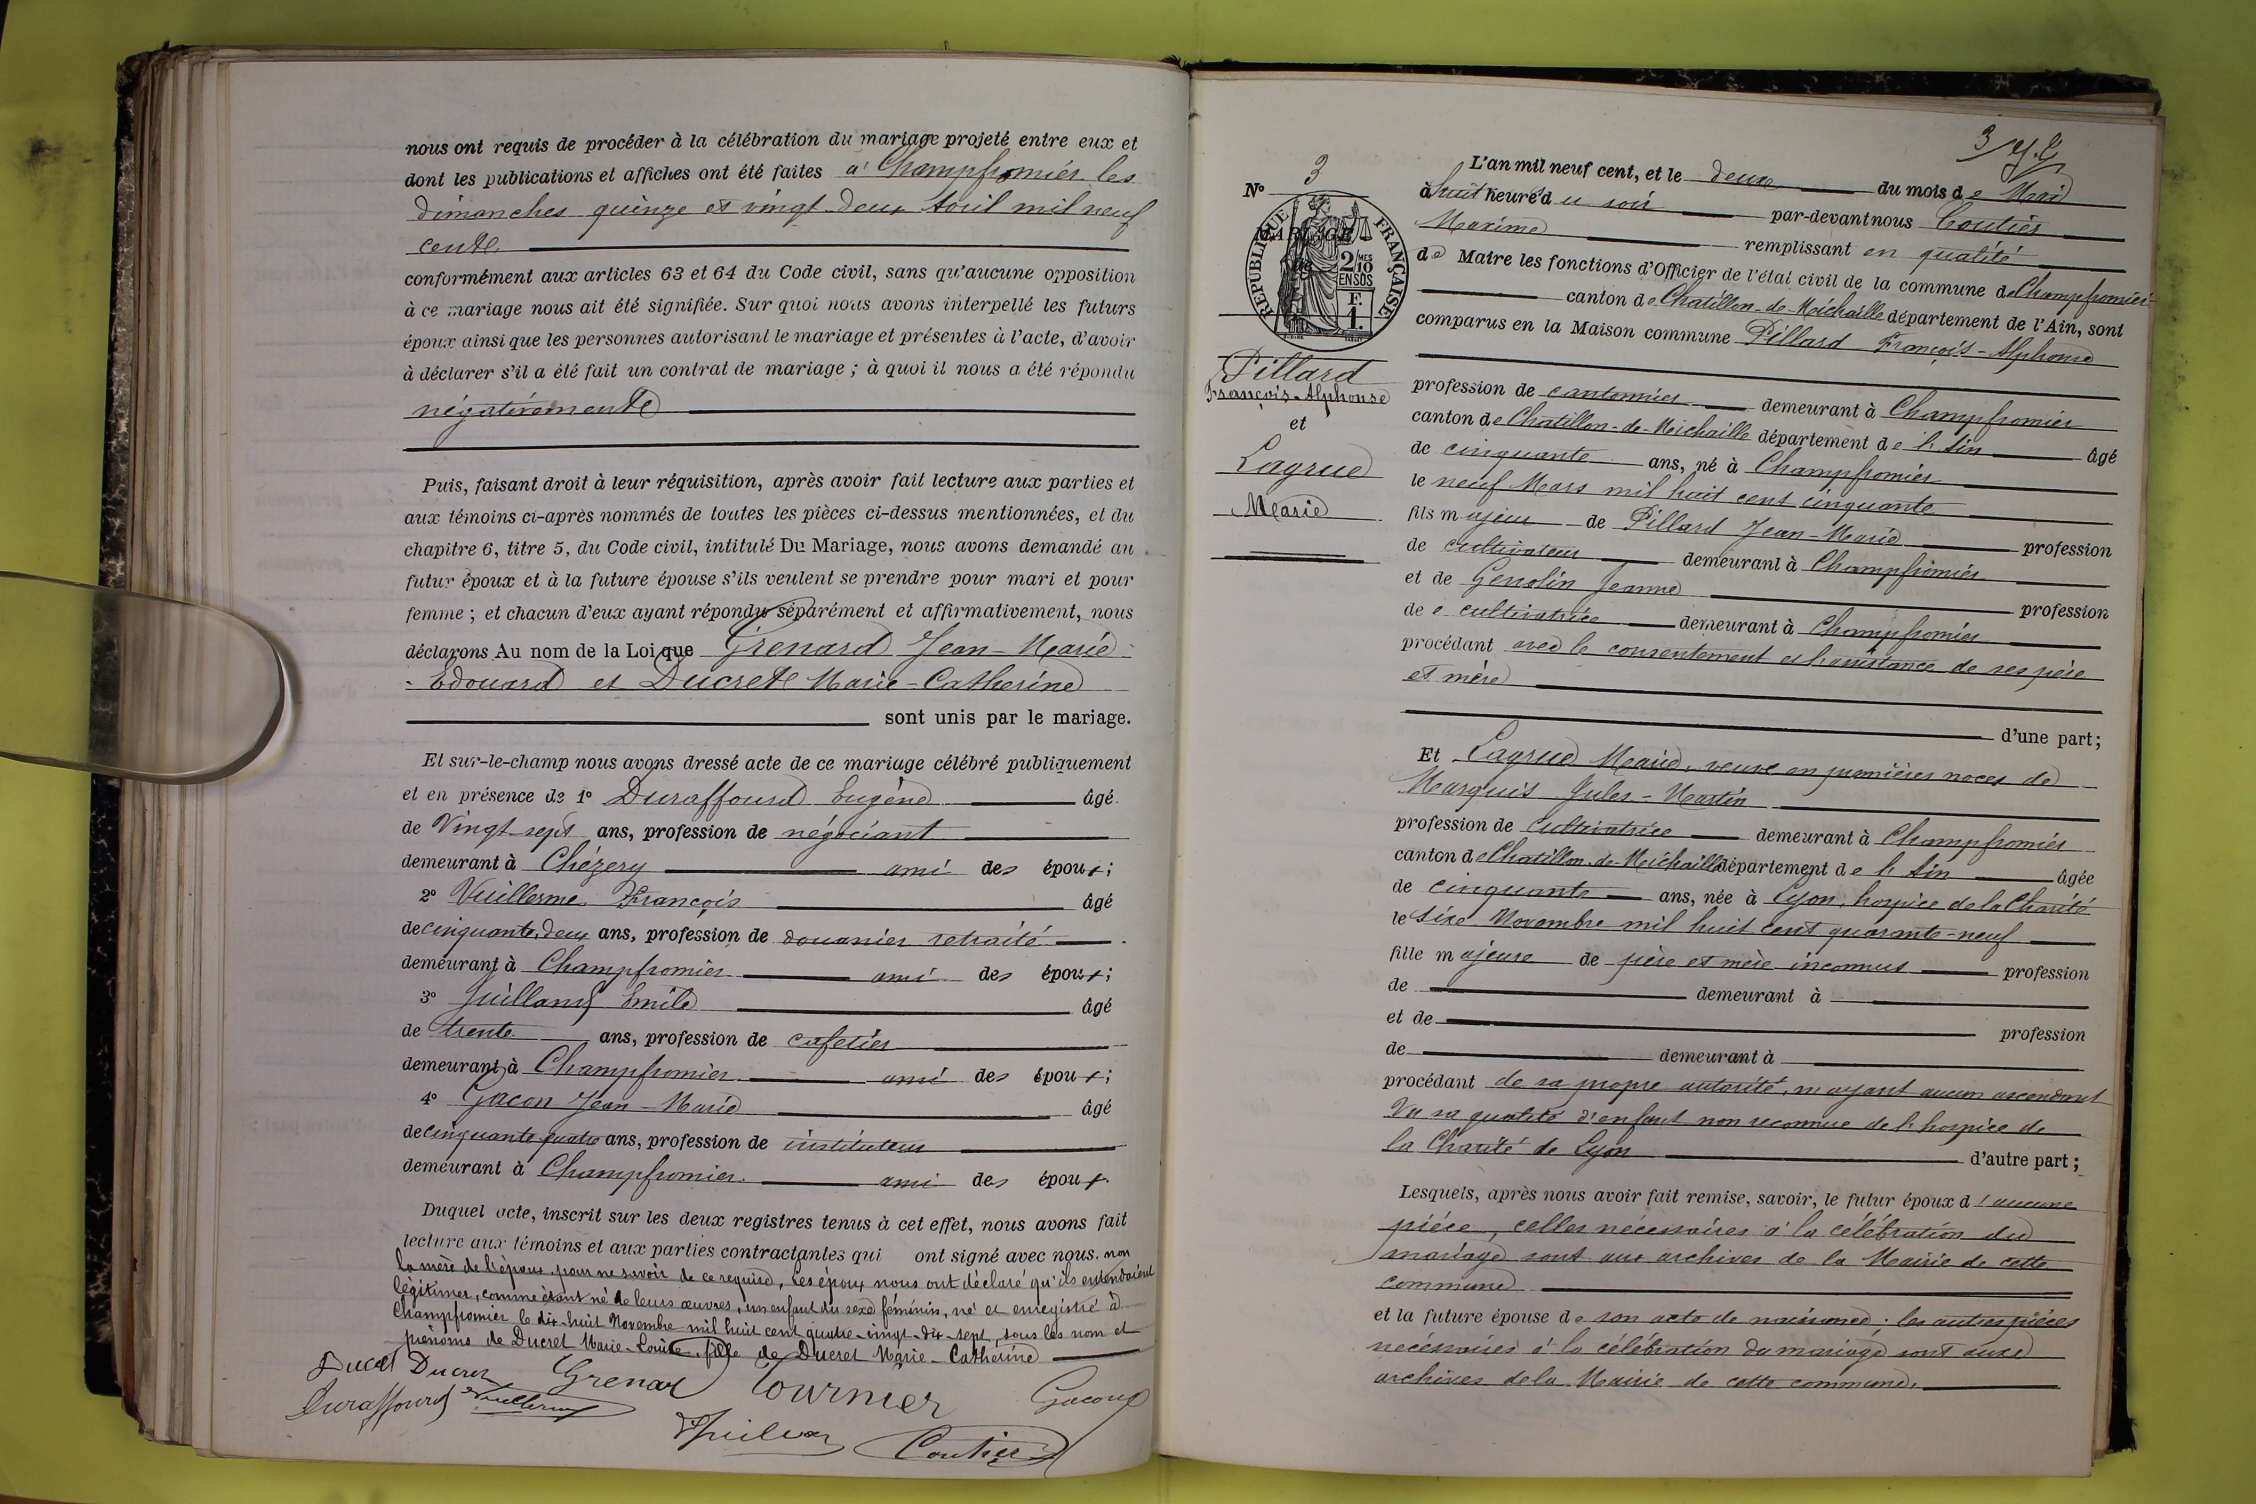 nous ont requis de procéder à la célébration du mariage projeté entre eux et
dont les publications et affiches ont été faites à Champfromier les
dimanches quinze et vingt-deux Avril mil neuf
cent.
conformément aux articles 63 et 64 du Code civil, sans qu'aucune opposition
à ce mariage nous ait été signifiée. Sur quoi nous avons interpellé les futurs
époux ainsi que les personnes autorisant le mariage et présentes à l'acte, d'avoir
à déclarer s'il a été fait un contrat de mariage ; à quoi il nous a été répondu
négativement
Puis, faisant droit à leur réquisition, après avoir fait lecture aux parties et
aux témoins ci-après nommés de toutes les pièces ci-dessus mentionnées, et du
chapitre 6, titre 5, du Code civil, intitulé Du Mariage, nous avons demandé au
futur époux et à la future épouse s'ils veulent se prendre pour mari et pour
femme ; et chacun d'eux ayant répondu séparément et affirmativement, nous
déclarons Au nom de la Loi que Grenard Jean-Marie-
Edouard et Ducret Marie-Catherine
sont unis par le mariage.
Et sur-le-champ nous avons dressé acte de ce mariage célébré publiquement
et en présence de 1° Duraffourd Eugène âgé
de Vingt-sept ans, profession de négociant
demeurant à Chézery ami des époux;
2° Vuillerme François âgé
de cinquante-deux ans, profession de douanier retraité
demeurant à Champfromier ami des époux;
3° Juilland Emile âgé
de trente ans, profession de cafetier
demeurant à Champfromier ami des époux;
4° Gacon Jean-Marie âgé
de cinquante-quatre ans, profession de instituteur
demeurant à Champfromier. ami des époux.
Duquel acte, inscrit sur les deux registres tenus à cet effet, nous avons fait
lecture aux témoins et aux parties contractantes qui ont signé avec nous. non
la mère de l'époux pour ne savoir de ce requise, Les époux nous ont déclaré qu'ils entendaient
légitimer, comme étant né de leurs œuvres, un enfant du sexe féminin, né et enregistré à
Champfromier le dix-huit Novembre mil huit cent quatre-vingt-dix-sept, sous les nom et
prénoms de Ducret Marie-Louise, fille de Ducret Marie-Catherine
Ducret Ducret Grenard Tournier Gacon
Duraffourd Vuillerme
Coutier
3
N° 3
MARIAGE
RÉPUBLIQUE FRANÇAISE
2/10 MES
EN SUS
F.
1.
Pillard
François-Alphonse
et
Lagrue
Marie
L'an mil neuf cent, et le deux du mois de Mai
à huit heures du soir par-devant nous Coutier
Maxime remplissant en qualité
de Maire les fonctions d'Officier de l'état civil de la commune de Champfromier
canton de Chatillon-de-Michaille département de l'Ain, sont
comparus en la Maison commune Pillard François-Alphonse
profession de cantonnier demeurant à Champfromier
canton de Chatillon-de-Michaille département de l'Ain âgé
de cinquante ans, né à Champfromier
le neuf Mars mil huit cent cinquante
fils majeur de Pillard Jean-Marie profession
de cultivateur demeurant à Champfromier
et de Genolin Jeanne profession
de cultivatrice demeurant à Champfromier
procédant avec le consentement et l'assistance de ses père
et mère
d'une part;
Et Lagrue Marie, veuve en premières noces de
Marquis Jules-Martin
profession de cultivatrice demeurant à Champfromier
canton de Chatillon-de-Michaille département de l'Ain âgée
de cinquante ans, née à Lyon, hospice de la Charité
le six Novembre mil huit cent quarante-neuf
fille majeure de père et mère inconnus profession
de demeurant à
et de profession
de demeurant à
procédant de sa propre autorité, n'ayant aucun ascendant
Vu sa qualité d'enfant non reconnue de l'hospice de
la Charité de Lyon d'autre part;
Lesquels, après nous avoir fait remise, savoir, le futur époux d'aucune
pièce, celles nécessaires à la célébration du
mariage sont aux archives de la Mairie de cette
commune
et la future épouse de son acte de naissance ; les autres pièces
nécessaires à la célébration du mariage sont aux
archives de la Mairie de cette commune.